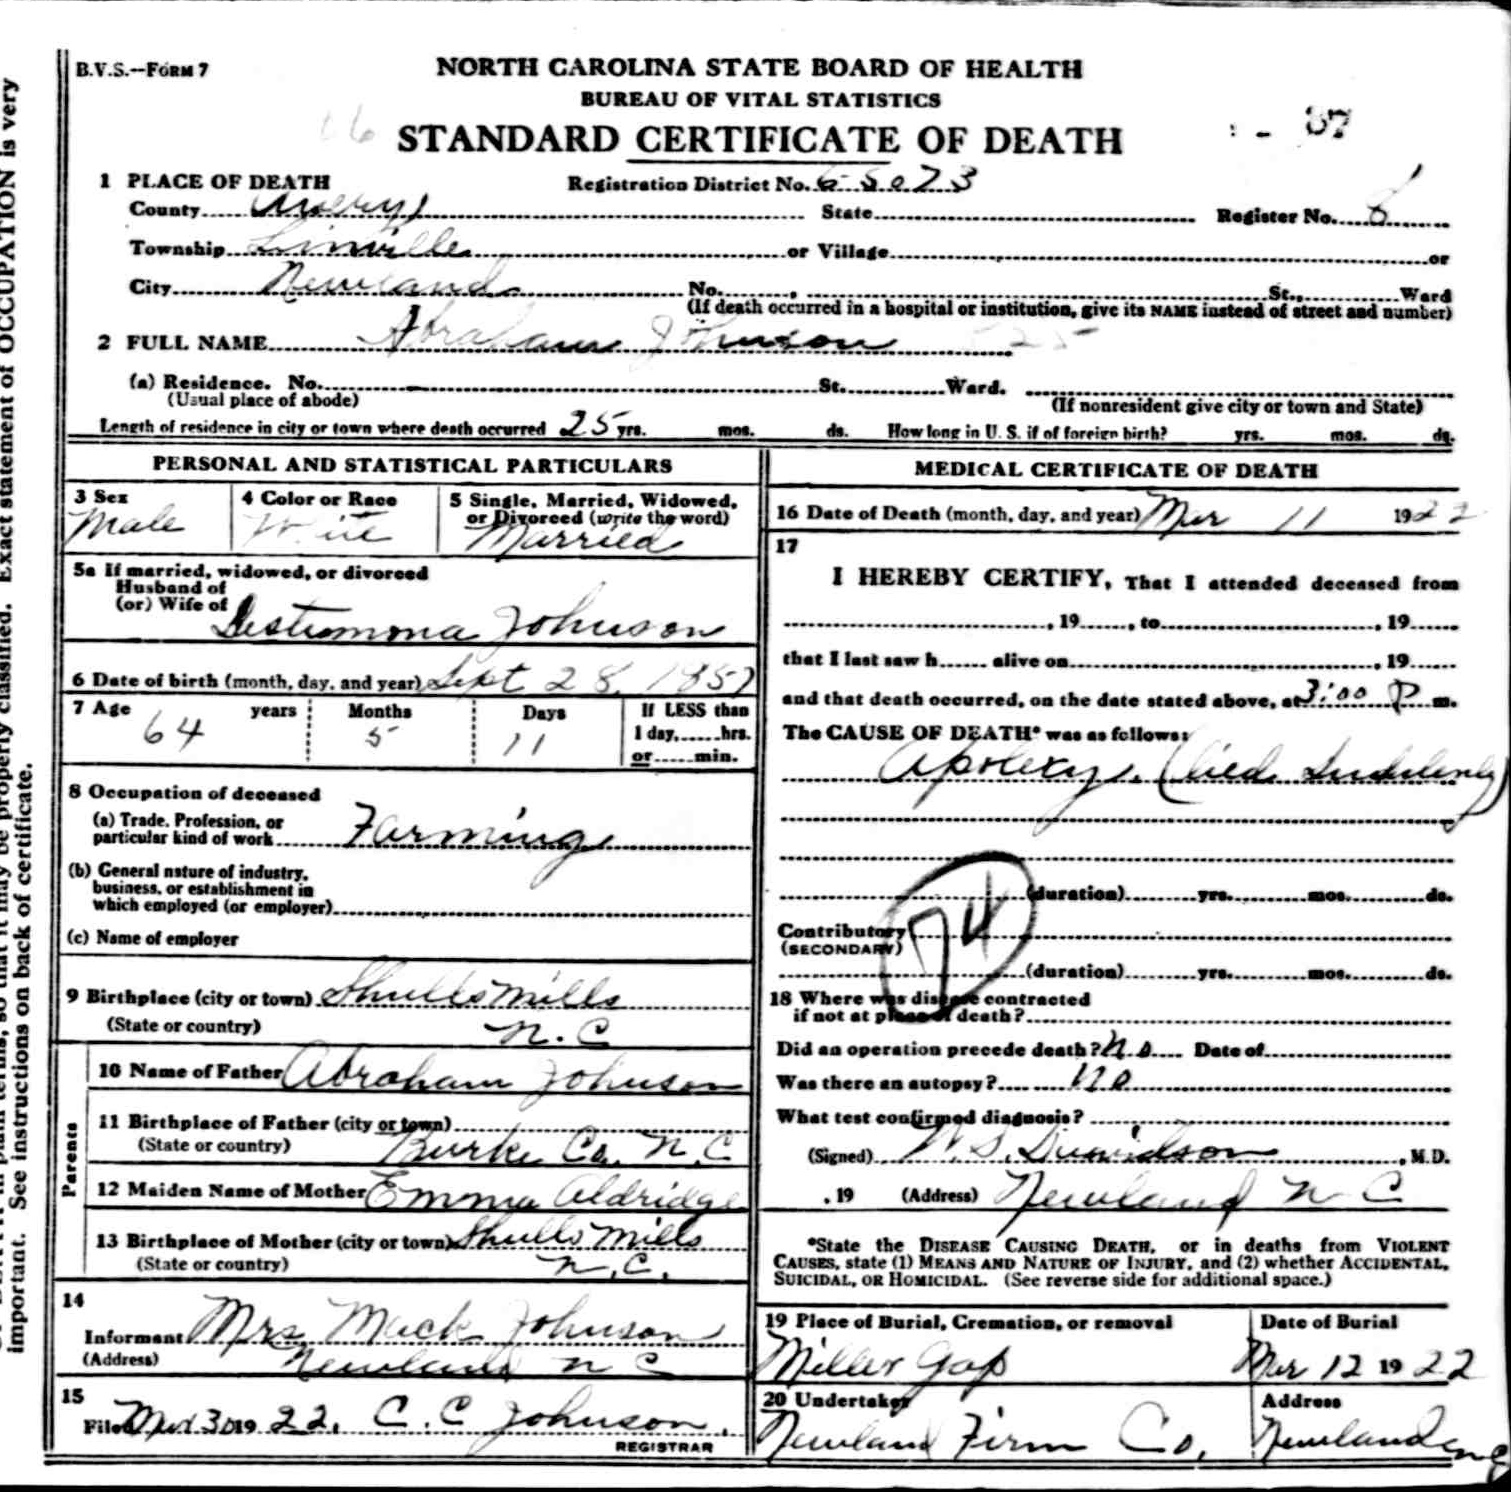 B.V.S.--FORM 7
NORTH CAROLINA STATE BOARD OF HEALTH
BUREAU OF VITAL STATISTICS
STANDARD CERTIFICATE OF DEATH
87
1 PLACE OF DEATH Registration District No. 6-5073
County Avery State Register No. 8
Township Linville or Village or
City Newland No. St., Ward
(If death occurred in a hospital or institution, give its NAME instead of street and number)
2 FULL NAME Abraham Johnson
(a) Residence. No. St. Ward.
(Usual place of abode) (If nonresident give city or town and State)
Length of residence in city or town where death occurred 25 yrs. mos. ds. How long in U. S. if of foreign birth? yrs. mos. ds.
PERSONAL AND STATISTICAL PARTICULARS
3 Sex 4 Color or Race 5 Single, Married, Widowed,
or Divorced (write the word)
Male White Married
5a If married, widowed, or divorced
Husband of
(or) Wife of Destumona Johnson
6 Date of birth (month, day, and year) Sept 28, 1857
7 Age years Months Days If LESS than
64 5 11 1 day, hrs.
or min.
8 Occupation of deceased
(a) Trade, Profession, or
particular kind of work Farming
(b) General nature of industry,
business, or establishment in
which employed (or employer)
(c) Name of employer
9 Birthplace (city or town) Shulls Mills
(State or country) N. C
Parents
10 Name of Father Abraham Johnson
11 Birthplace of Father (city or town)
(State or country) Burke Co. N. C
12 Maiden Name of Mother Emma Aldridge
13 Birthplace of Mother (city or town) Shulls Mills
(State or country) N. C.
14
Informant Mrs Mack Johnson
(Address) Newland N C
15
Filed Mar 30 1922. C. C Johnson.
REGISTRAR
MEDICAL CERTIFICATE OF DEATH
16 Date of Death (month, day, and year) Mar 11 1922
17
I HEREBY CERTIFY, That I attended deceased from
, 19 , to , 19
that I last saw h alive on , 19
and that death occurred, on the date stated above, at 3:00 P m.
The CAUSE OF DEATH* was as follows:
Apolexy. (died Suddenly)
(duration) yrs. mos. ds.
74
Contributory
(SECONDARY)
(duration) yrs. mos. ds.
18 Where was disease contracted
if not at place of death?
Did an operation precede death? No Date of
Was there an autopsy? no
What test confirmed diagnosis?
(Signed) W. S. Davidson , M.D.
, 19 (Address) Newland N C
*State the DISEASE CAUSING DEATH, or in deaths from VIOLENT
CAUSES, state (1) MEANS AND NATURE OF INJURY, and (2) whether ACCIDENTAL,
SUICIDAL, OR HOMICIDAL. (See reverse side for additional space.)
19 Place of Burial, Cremation, or removal Date of Burial
Miller Gap Mar 12 1922
20 Undertaker Address
Newland Firm Co. Newland NC
Exact statement of OCCUPATION is very
so that it may be properly classified.
important. See instructions on back of certificate.